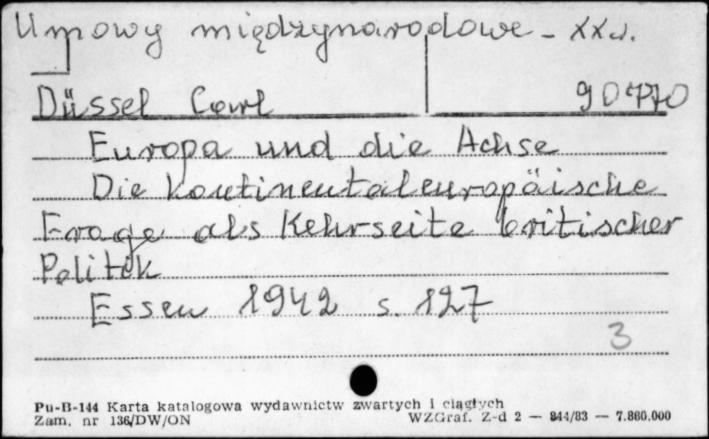 Umowy międzynarodowe - XX w.
Düssel Carl 90470
Europa und die Achse
Die kontinentaleuropäische
Frage als Kehrseite britischer
Politik
Essen 1942 s. 127
3
Pu-B-144 Karta katalogowa wydawnictw zwartych i ciągłych
Zam. nr 136/DW/ON WZGraf. Z-d 2 — 844/83 — 7.860.000